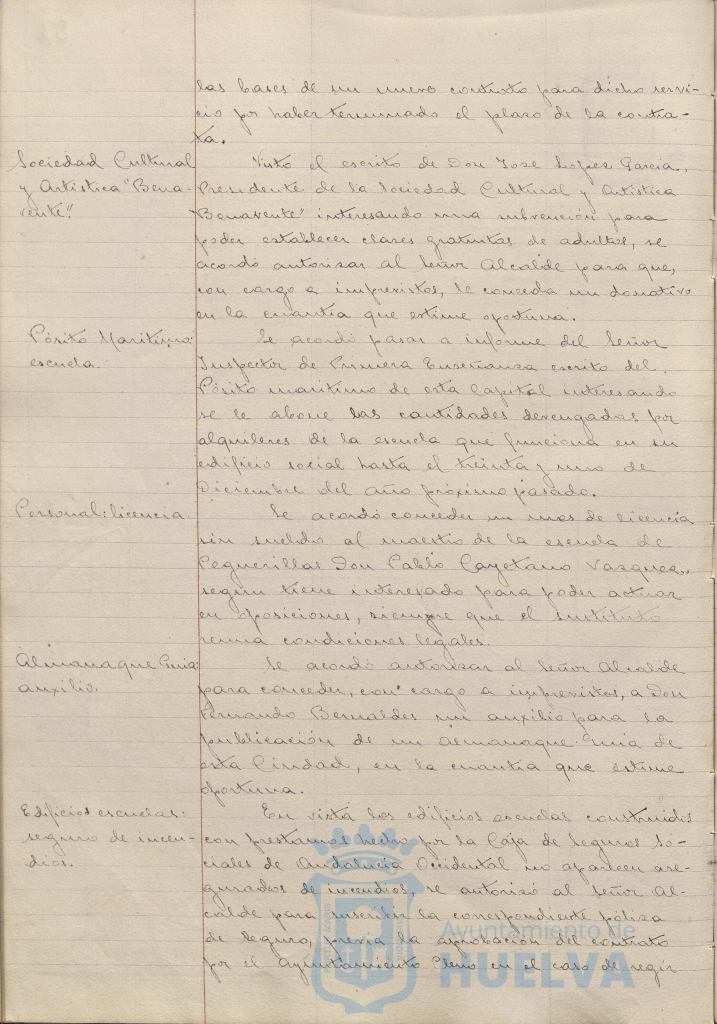 las bases de un nuevo contrato para dicho servi-
cio por haber terminado el plazo de la contra-
ta.
Sociedad Cultural
y Artistica "Bena-
vente".
Visto el escrito de Don Jose Lopez Garcia,
Presidente de la Sociedad Cultural y Artistica
"Benavente" interesando una subvención para
poder establecer clases gratuitas de adultos, se
acordó autorizar al Señor Alcalde para que,
con cargo a imprevistos, le conceda un donativo
en la cuantia que estime oportuna.
Pósito Maritimo:
escuela.
Se acordó pasar a informe del Señor
Inspector de Primera Enseñanza escrito del
Pósito maritimo de esta Capital interesando
se le abone las cantidades devengadas por
alquileres de la escuela que funciona en su
edificio social hasta el treinta y uno de
Diciembre del año próximo pasado.
Personal: licencia.
Se acordó conceder un mes de licencia
sin sueldo al maestro de la escuela de
Peguerillas Don Pablo Cayetano Vazquez,
según tiene interesado para poder actuar
en oposiciones, siempre que el sustituto
reuna condiciones legales.
Almanaque Guia
auxilio.
Se acordó autorizar al Señor Alcalde
para conceder, con cargo a imprevistos, a Don
Fernando Bernaldez un auxilio para la
publicación de un Almanaque-Guia de
esta Ciudad, en la cuantia que estime
oportuna.
Edificios escuelas:
seguro de incen-
dios.
En vista los edificios escuelas construidos
con prestamos hecho por la Caja de Seguros So-
ciales de Andalucia Occidental no aparecen ase-
gurados de incendios, se autorizó al Señor Al-
calde para suscribir la correspondiente poliza
de Seguro, previa la aprobación del contrato
por el Ayuntamiento Pleno en el caso de regir
Ayuntamiento de
HUELVA